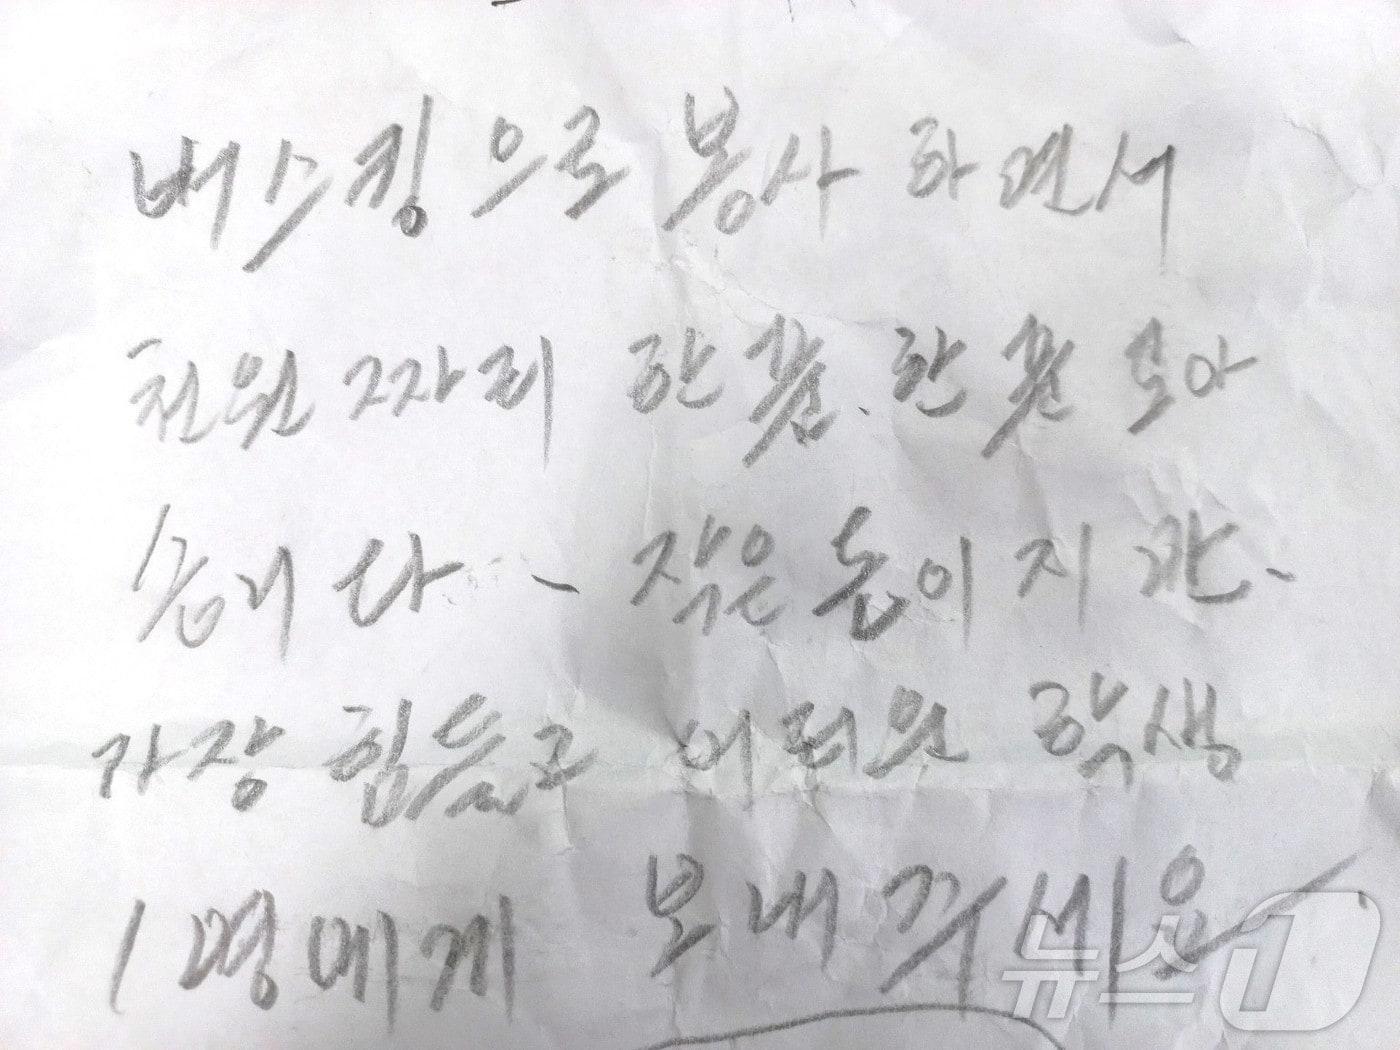 버스킹으로 봉사 하면서
천원 짜리 한푼. 한푼 모아
습니다 - 작은 손이지만 -
가장 힘들고 어려운 학생
1명에게 보내 주세요
뉴스1